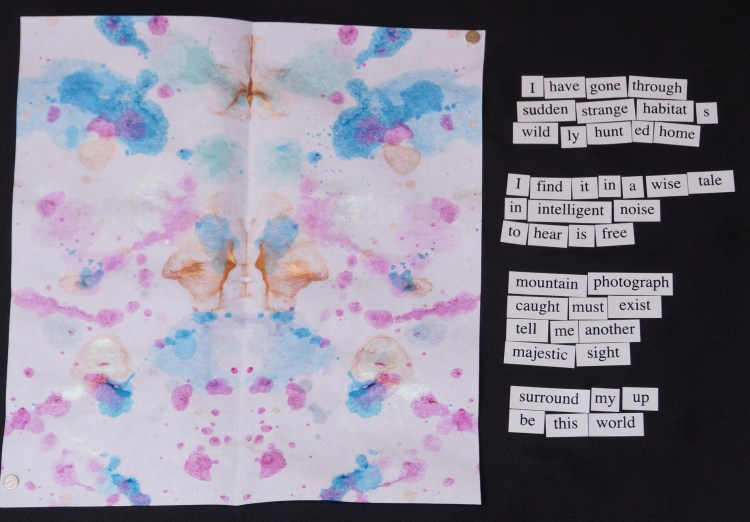 I have gone through
sudden strange habitat s
wild ly hunt ed home
I find it in a wise tale
in intelligent noise
to hear is free
mountain photograph
caught must exist
tell me another
majestic sight
surround my up
be this world